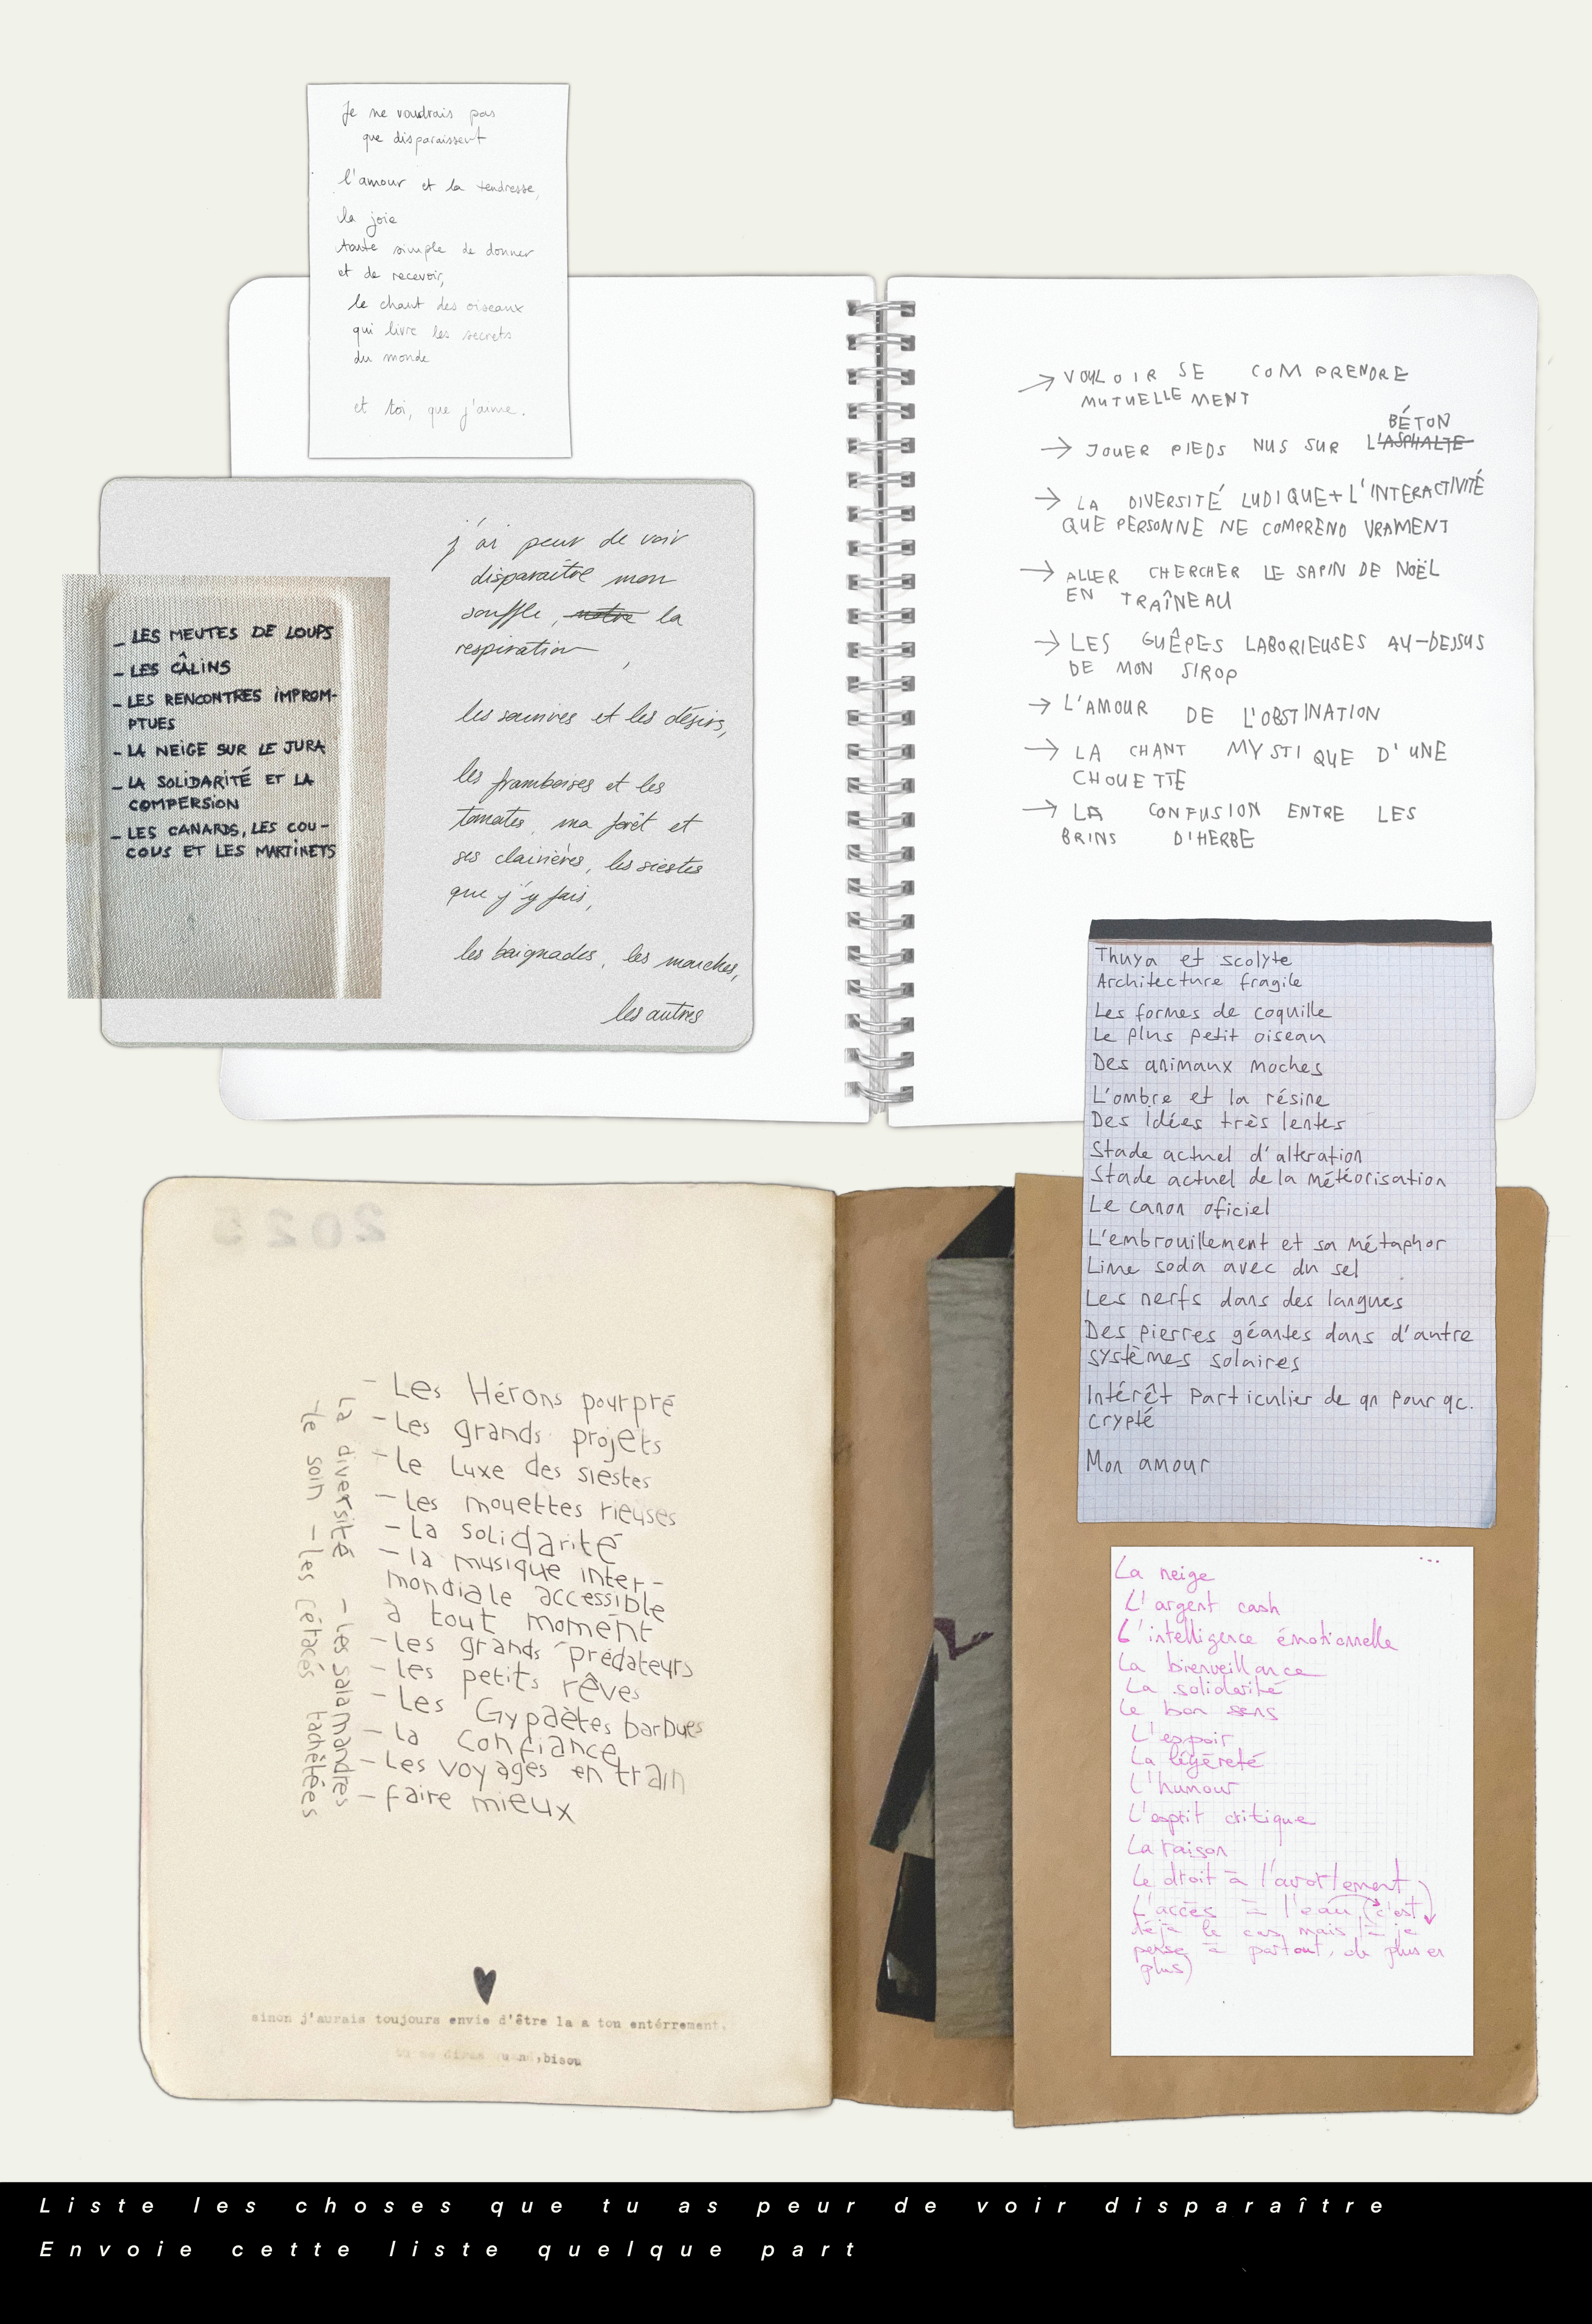 Je ne voudrais pas
que disparaissent
l'amour et la tendresse,
la joie
toute simple de donner
et de recevoir,
le chant des oiseaux
qui livre les secrets
du monde
et toi, que j'aime.
j'ai peur de voir
disparaître mon
souffle, notre la
respiration,
les sourires et les désirs,
les framboises et les
tomates, ma forêt et
ses clairières, les siestes
que j'y fais,
les baignades, les marches,
les autres
_ LES MEUTES DE LOUPS
- LES CÂLINS
- LES RENCONTRES IMPROM-
PTUES
- LA NEIGE SUR LE JURA
- LA SOLIDARITÉ ET LA
COMPERSION
- LES CANARDS, LES COU-
COUS ET LES MARTINETS
→ VOULOIR SE COMPRENDRE
MUTUELLEMENT
BÉTON
→ JOUER PIEDS NUS SUR L'ASPHALTE
→ LA DIVERSITÉ LUDIQUE + L'INTERACTIVITÉ
QUE PERSONNE NE COMPREND VRAIMENT
→ ALLER CHERCHER LE SAPIN DE NOËL
EN TRAÎNEAU
→ LES GUÊPES LABORIEUSES AU-DESSUS
DE MON SIROP
→ L'AMOUR DE L'OBSTINATION
→ LA CHANT MYSTIQUE D'UNE
CHOUETTE
→ LA CONFUSION ENTRE LES
BRINS D'HERBE
Thuya et scolyte
Architecture fragile
Les formes de coquille
Le plus petit oiseau
Des animaux moches
L'ombre et la résine
Des idées très lentes
Stade actuel d'alteration
Stade actuel de la météorisation
Le canon oficiel
L'embrouillement et sa métaphor
Lime soda avec du sel
Les nerfs dans des langues
Des pierres géantes dans d'autre
systèmes solaires
Intérêt particulier de qn pour qc.
crypté
Mon amour
2025
- Les Hérons pourpré
- Les grands projets
- le luxe des siestes
- les mouettes rieuses
- la solidarité
- la musique inter-
mondiale accessible
à tout moment
- les grands prédateurs
- les petits rêves
- Les Gypaètes barbues
- la confiance
- Les voyages en train
- faire mieux
la diversité - les salamandres tachetées
- le soin - les cétacés
sinon j'aurais toujours envie d'être la a ton entérrement.
diras quand, bisou
...
La neige
L'argent cash
L'intelligence émotionnelle
La bienveillance
La solidarité
Le bon sens
L'espoir
La légèreté
L'humour
L'esprit critique
La raison
Le droit à l'avortement
L'accès à l'eau (c'est
déjà le cas mais là je
pense à partout, de plus en
plus)
Liste les choses que tu as peur de voir disparaître
Envoie cette liste quelque part